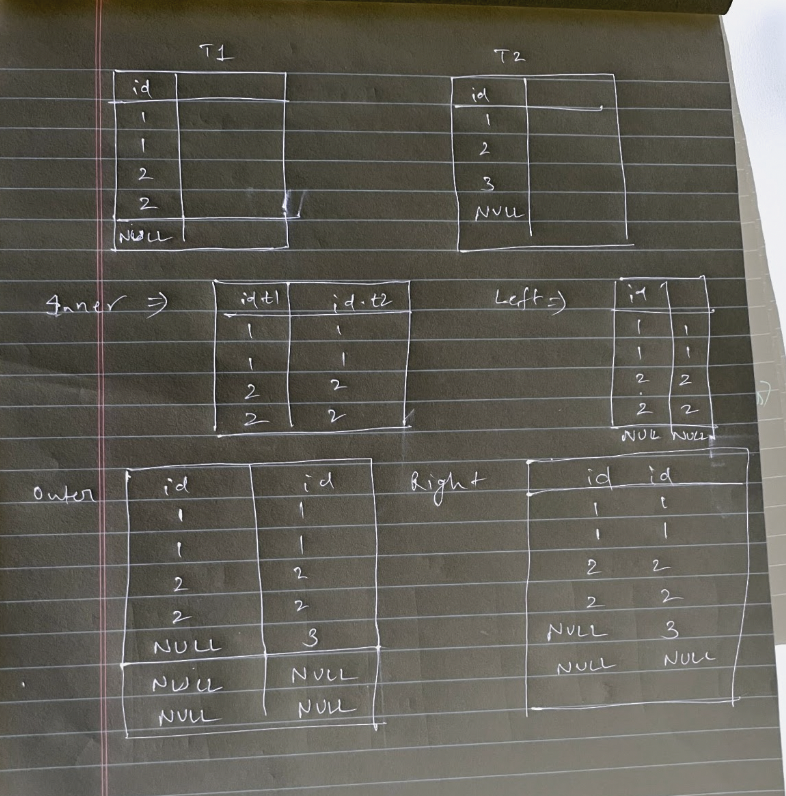 T1
id
1
1
2
2
NULL
T2
id
1
2
3
NULL
Inner ⇒
id t1 id.t2
1 1
1 1
2 2
2 2
Left ⇒
id
1 1
1 1
2 2
2 2
NULL NULL
Outer
id id
1 1
1 1
2 2
2 2
NULL 3
NULL NULL
NULL NULL
Right
id id
1 1
1 1
2 2
2 2
NULL 3
NULL NULL